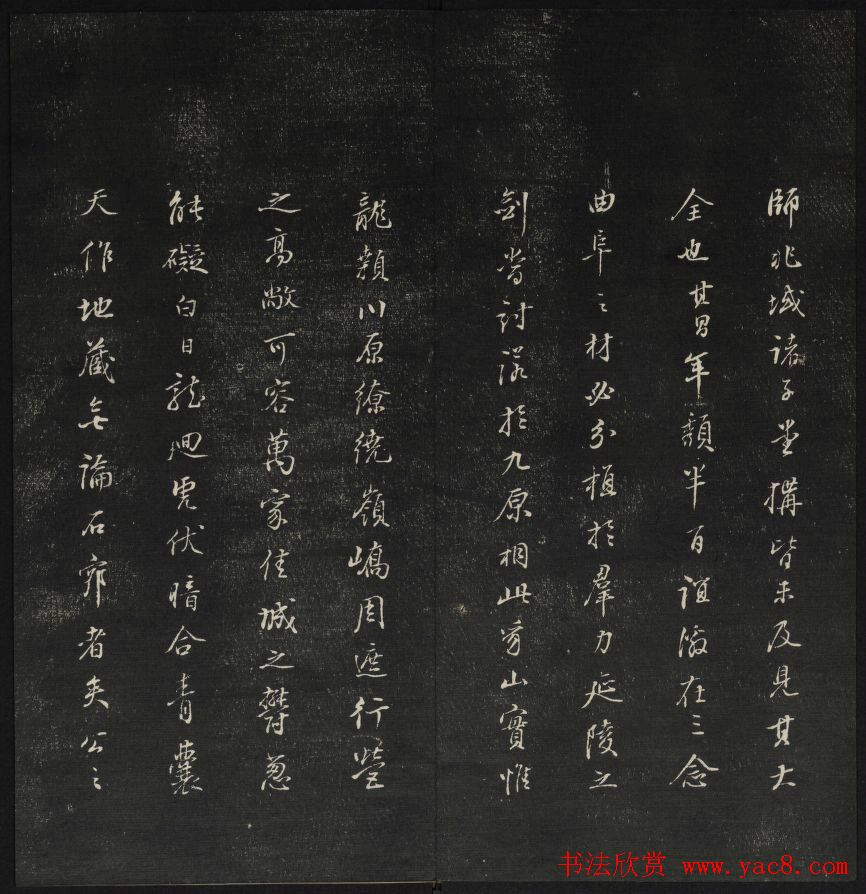 師兆域諸子堂搆皆未及見其大
全也其昌年顏半百誼激在三念
曲阜之材必分植於羣力延陵之
劍當討源於九原相此崇山實惟
龍顙川原繚繞嶺嶠周遮行營
之高敞可容萬家佳城之鬱葱
能礙白日龍迴虎伏暗合青囊
天作地藏無論石郭者矣公之
书法欣赏 www.yac8.com